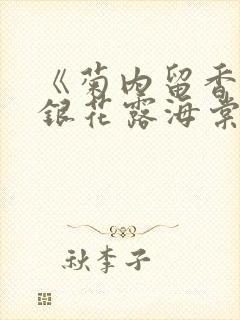 《菊内留香
銀花露海棠
秋李子